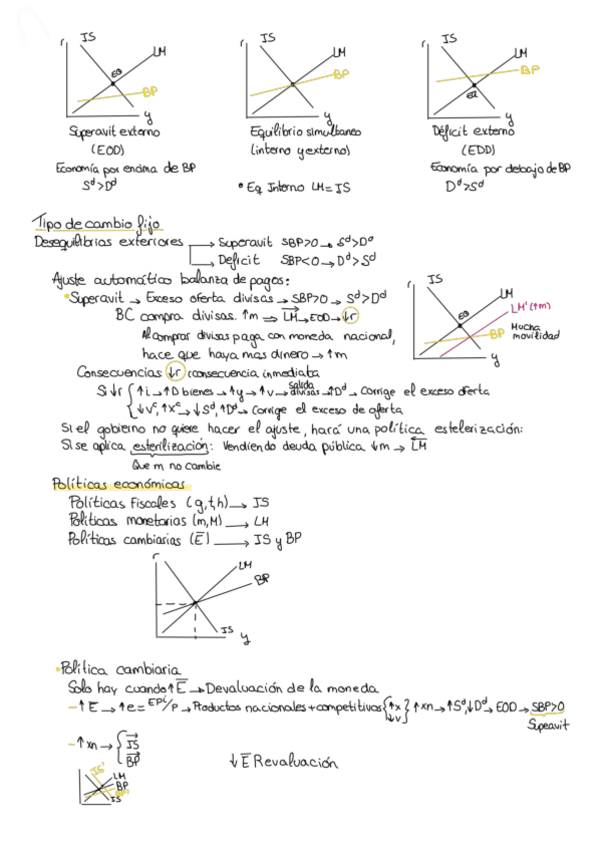 r IS LM EQ BP y
r IS LM BP y
r IS LM BP EQ y
Superavit externo
(EOD)
Economía por encima de BP
Sᵈ>Dᵈ
Equilibrio simultaneo
(interno y externo)
• Eq Interno LM = IS
Déficit externo
(EDD)
Economía por debajo de BP
Dᵈ>Sᵈ
Tipo de cambio fijo
Desequilibrios exteriores → Superavit SBP>0 → Sᵈ>Dᵈ
→ Deficit SBP<0 → Dᵈ>Sᵈ
Ajuste automático balanza de pagos:
• Superavit → Exceso oferta divisas → SBP>0 → Sᵈ>Dᵈ
BC compra divisas. ↑m ⇒ LM → EOD → ↓r
Al comprar divisas paga con moneda nacional,
hace que haya mas dinero → ↑m
r IS LM LM'(↑m) EQ BP Mucha movilidad y
Consecuencias ↓r consecuencia inmediata
Si ↓r { ↑i → ↑D bienes → ↑y → ↑v → salida divisas → ↑Dᵈ → Corrige el exceso oferta
↓Vᶜ, ↑Xᶜ → ↓Sᵈ, ↑Dᵈ → Corrige el exceso de oferta
Si el gobierno no quiere hacer el ajuste, hará una política estelerización:
Si se aplica esterilización: Vendiendo deuda pública ↓m → LM
Que m no cambie
Políticas económicas
Políticas Fiscales (g,t,h) → IS
Políticas monetarias (m,M) → LM
Políticas cambiarias (E̅) → IS y BP
r LM BP IS y
• Política cambiaria
Solo hay cuando ↑E̅ → Devaluación de la moneda
- ↑E → ↑e = EPi/P → Productos nacionales + competitivos { ↑x ↓v } ↑xn → ↑Sᵈ, ↓Dᵈ → EOD → SBP>0
Supeavit
- ↑xn → { IS
BP
↓E̅ Revaluación
IS' LM BP BP' IS